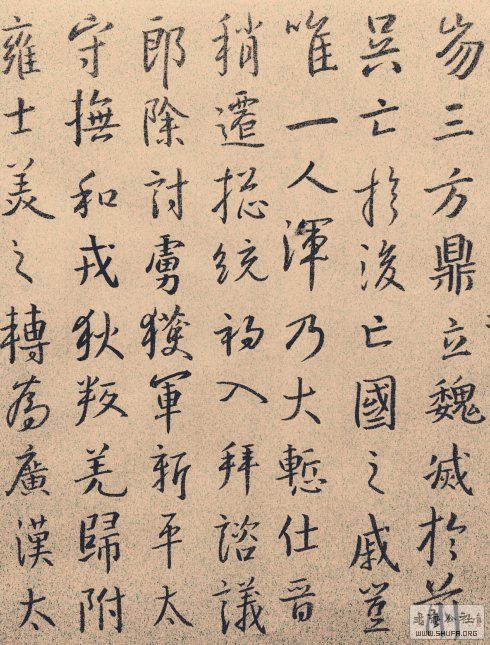 三方鼎立魏滅於
吳亡於後亡國之戚豈
唯一人渾乃大慙仕晉
稍遷捴統初入拜諮議
郎除討虜獲軍新平太
守撫和戎狄叛羌歸附
雍士美之轉為廣漢太
WWW.SHUFA.ORG